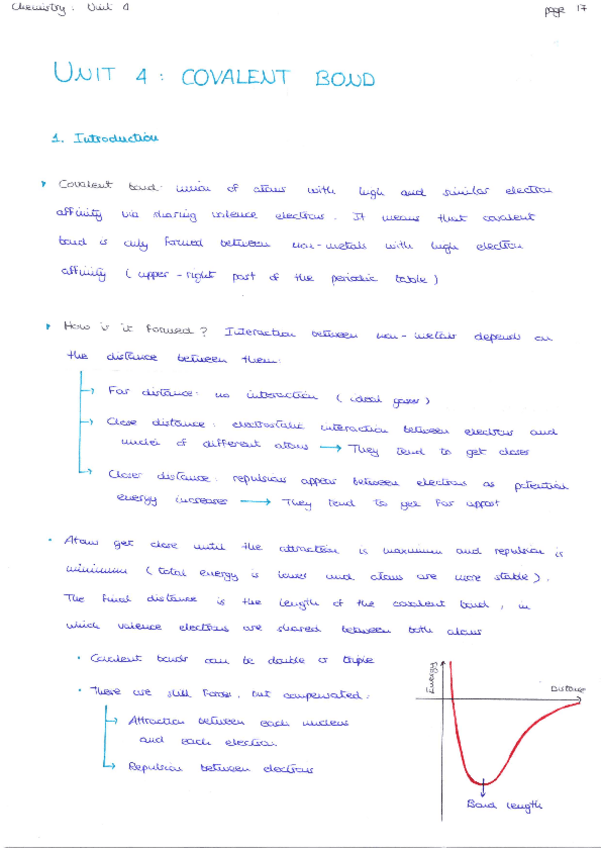 Chemistry: Unit 4
page 17
UNIT 4: COVALENT BOND
1. Introduction
Covalent bond: union of atoms with high and similar electron
affinity via sharing valence electrons. It means that covalent
bond is only formed between non-metals with high electron
affinity (upper-right part of the periodic table)
How is it formed? Interaction between non-metals depends on
the distance between them:
Far distance: no interaction (ideal gases)
Close distance: electrostatic interaction between electrons and
nuclei of different atoms → They tend to get closer
Closer distance: repulsions appear between electrons as potential
energy increases → They tend to get far appart
Atoms get close until the attraction is maximum and repulsion is
minimum (total energy is lower and atoms are more stable).
The final distance is the length of the covalent bond, in
which valence electrons are shared between both atoms
• Covalent bonds can be double or triple
• There are still forces, but compensated:
Attraction between each nucleus
and each electron.
Repulsion between electrons
Energy
Distance
Bond length